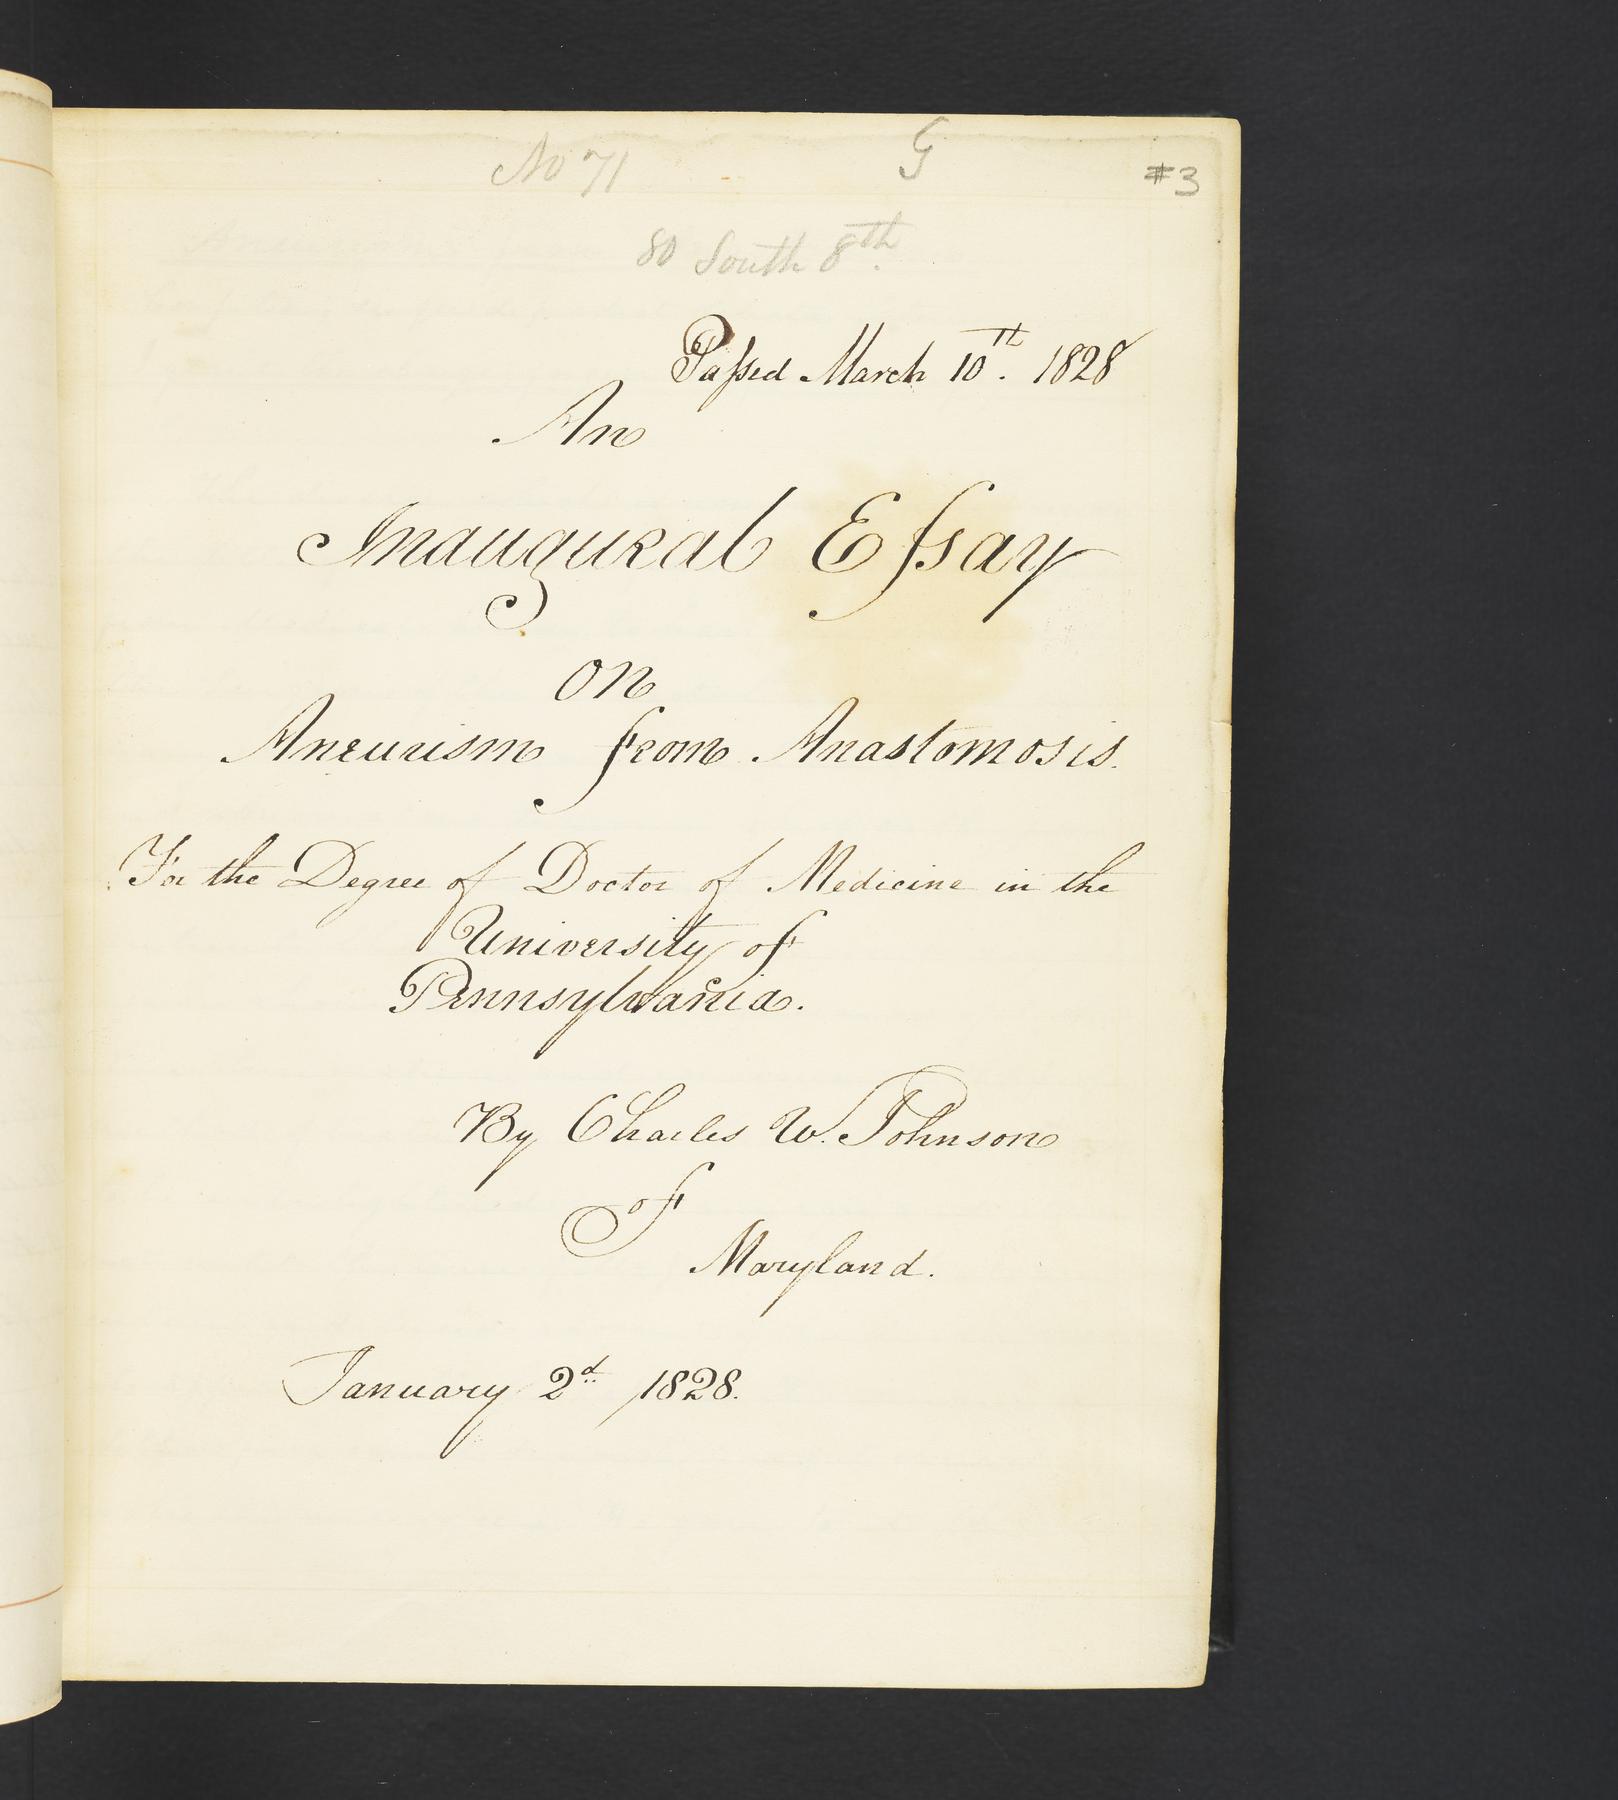 No 71 G #3
80 South 8th.
Passed March 10th. 1828
An
Inaugural Essay
on
Aneurism from Anastomosis.
For the Degree of Doctor of Medicine in the
University of
Pennsylvania.
By Charles W. Johnson
of
Maryland.
January 2d 1828.